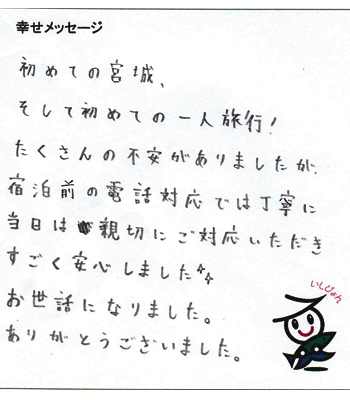 幸せメッセージ
初めての宮城、
そして初めての一人旅行!
たくさんの不安がありましたが、
宿泊前の電話対応では丁寧に
当日は親切にご対応いただき
すごく安心しました
お世話になりました。
ありがとうございました。
いしぴょん